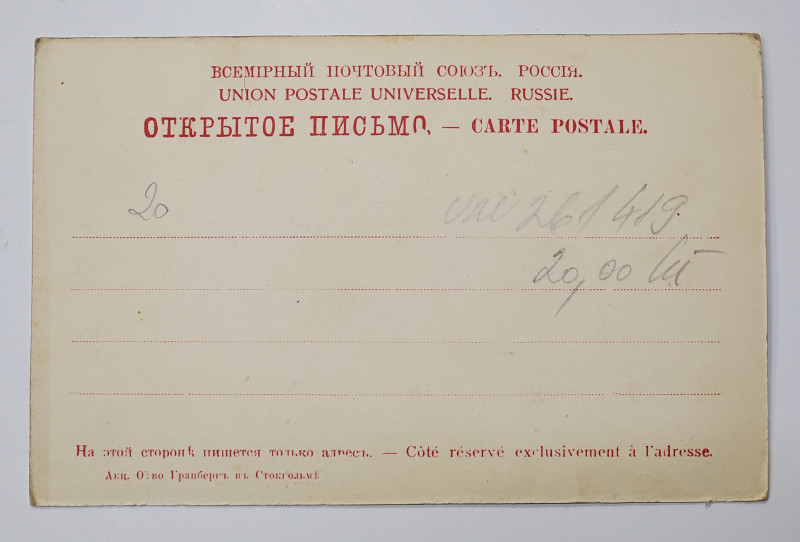 ВСЕМІРНЫЙ ПОЧТОВЫЙ СОЮЗЪ. РОССІЯ.
UNION POSTALE UNIVERSELLE. RUSSIE.
ОТКРЫТОЕ ПИСЬМО. — CARTE POSTALE.
20
261419
20,00
На этой сторонѣ пишется только адресъ. — Côté réservé exclusivement à l'adresse.
Акц. О-во Гранбергъ въ Стокгольмѣ